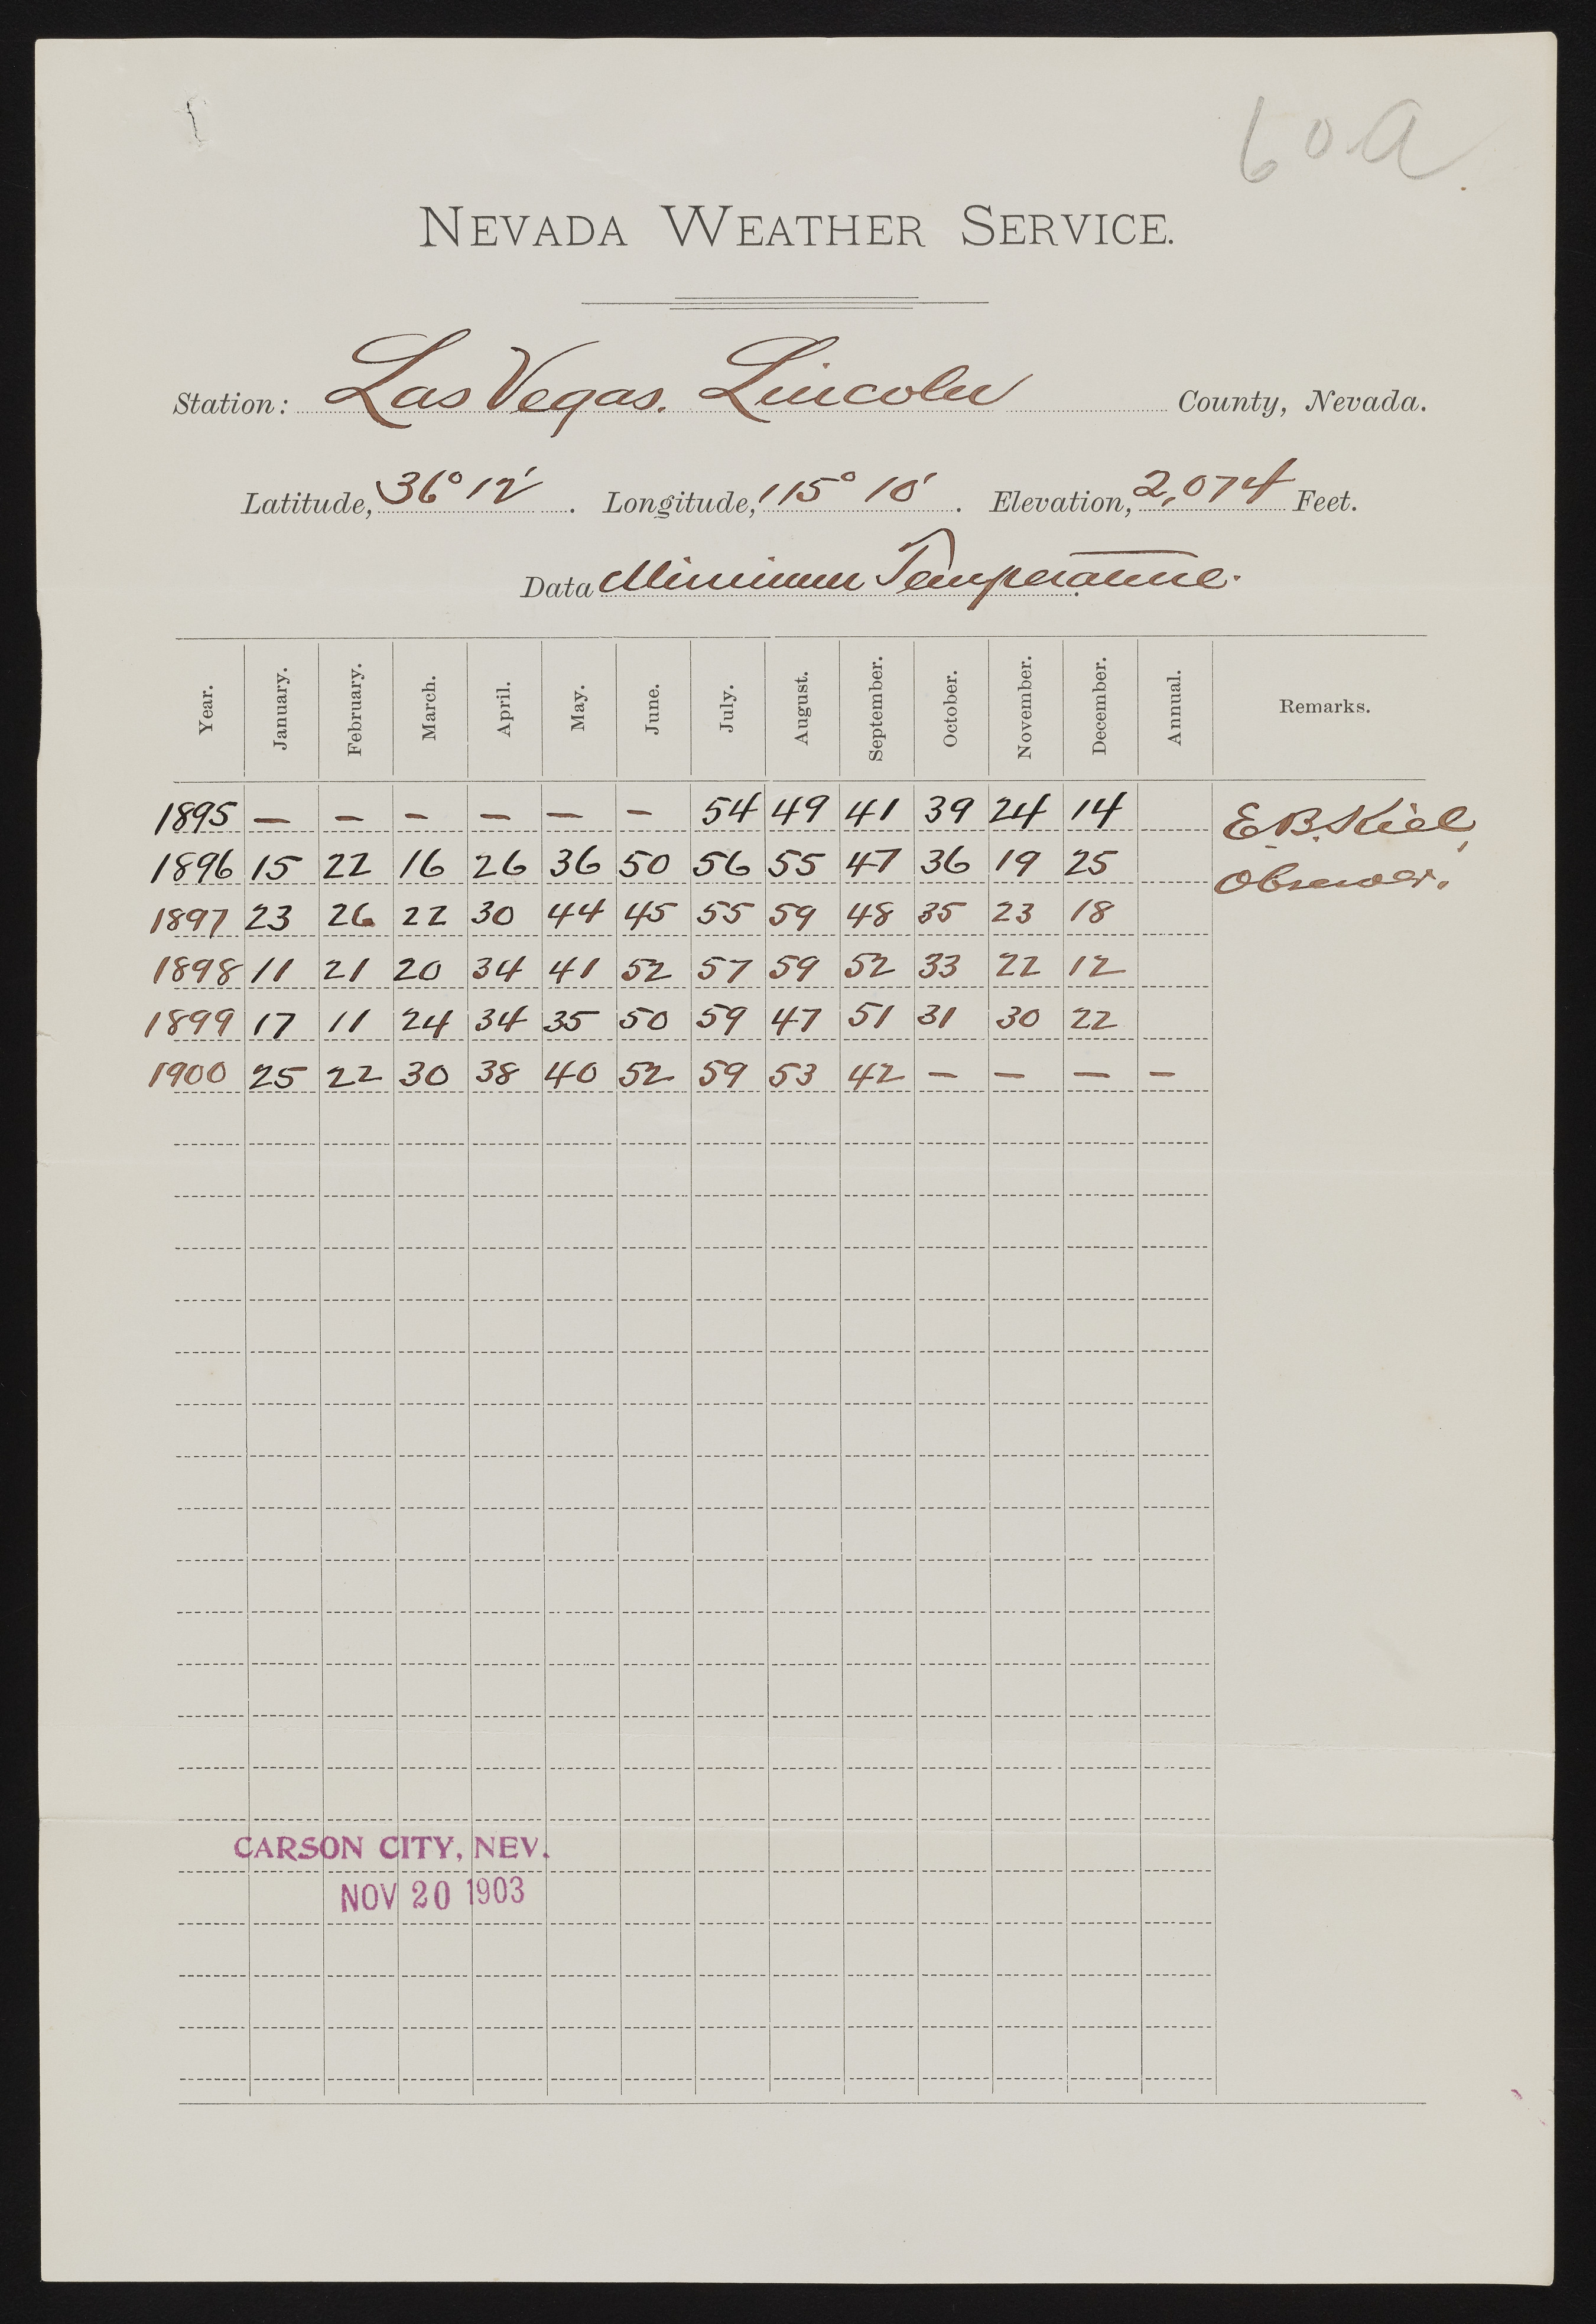 60a.
NEVADA WEATHER SERVICE.
Station: Las Vegas. Lincoln County, Nevada.
Latitude, 36° 12' . Longitude, 115° 10' . Elevation, 2,074 Feet.
Data Minimum Temperature.
Year. January. February. March. April. May. June. July. August. September. October. November. December. Annual. Remarks.
1895 — — — — — — 54 49 41 39 24 14 E. B. Kiel,
1896 15 22 16 26 36 50 56 55 47 36 19 25 Observer.
1897 23 26 22 30 44 45 55 59 48 35 23 18
1898 11 21 20 34 41 52 57 59 52 33 22 12
1899 17 11 24 34 35 50 59 47 51 31 30 22
1900 25 22 30 38 40 52 59 53 42 — — — —
CARSON CITY, NEV.
NOV 20 1903